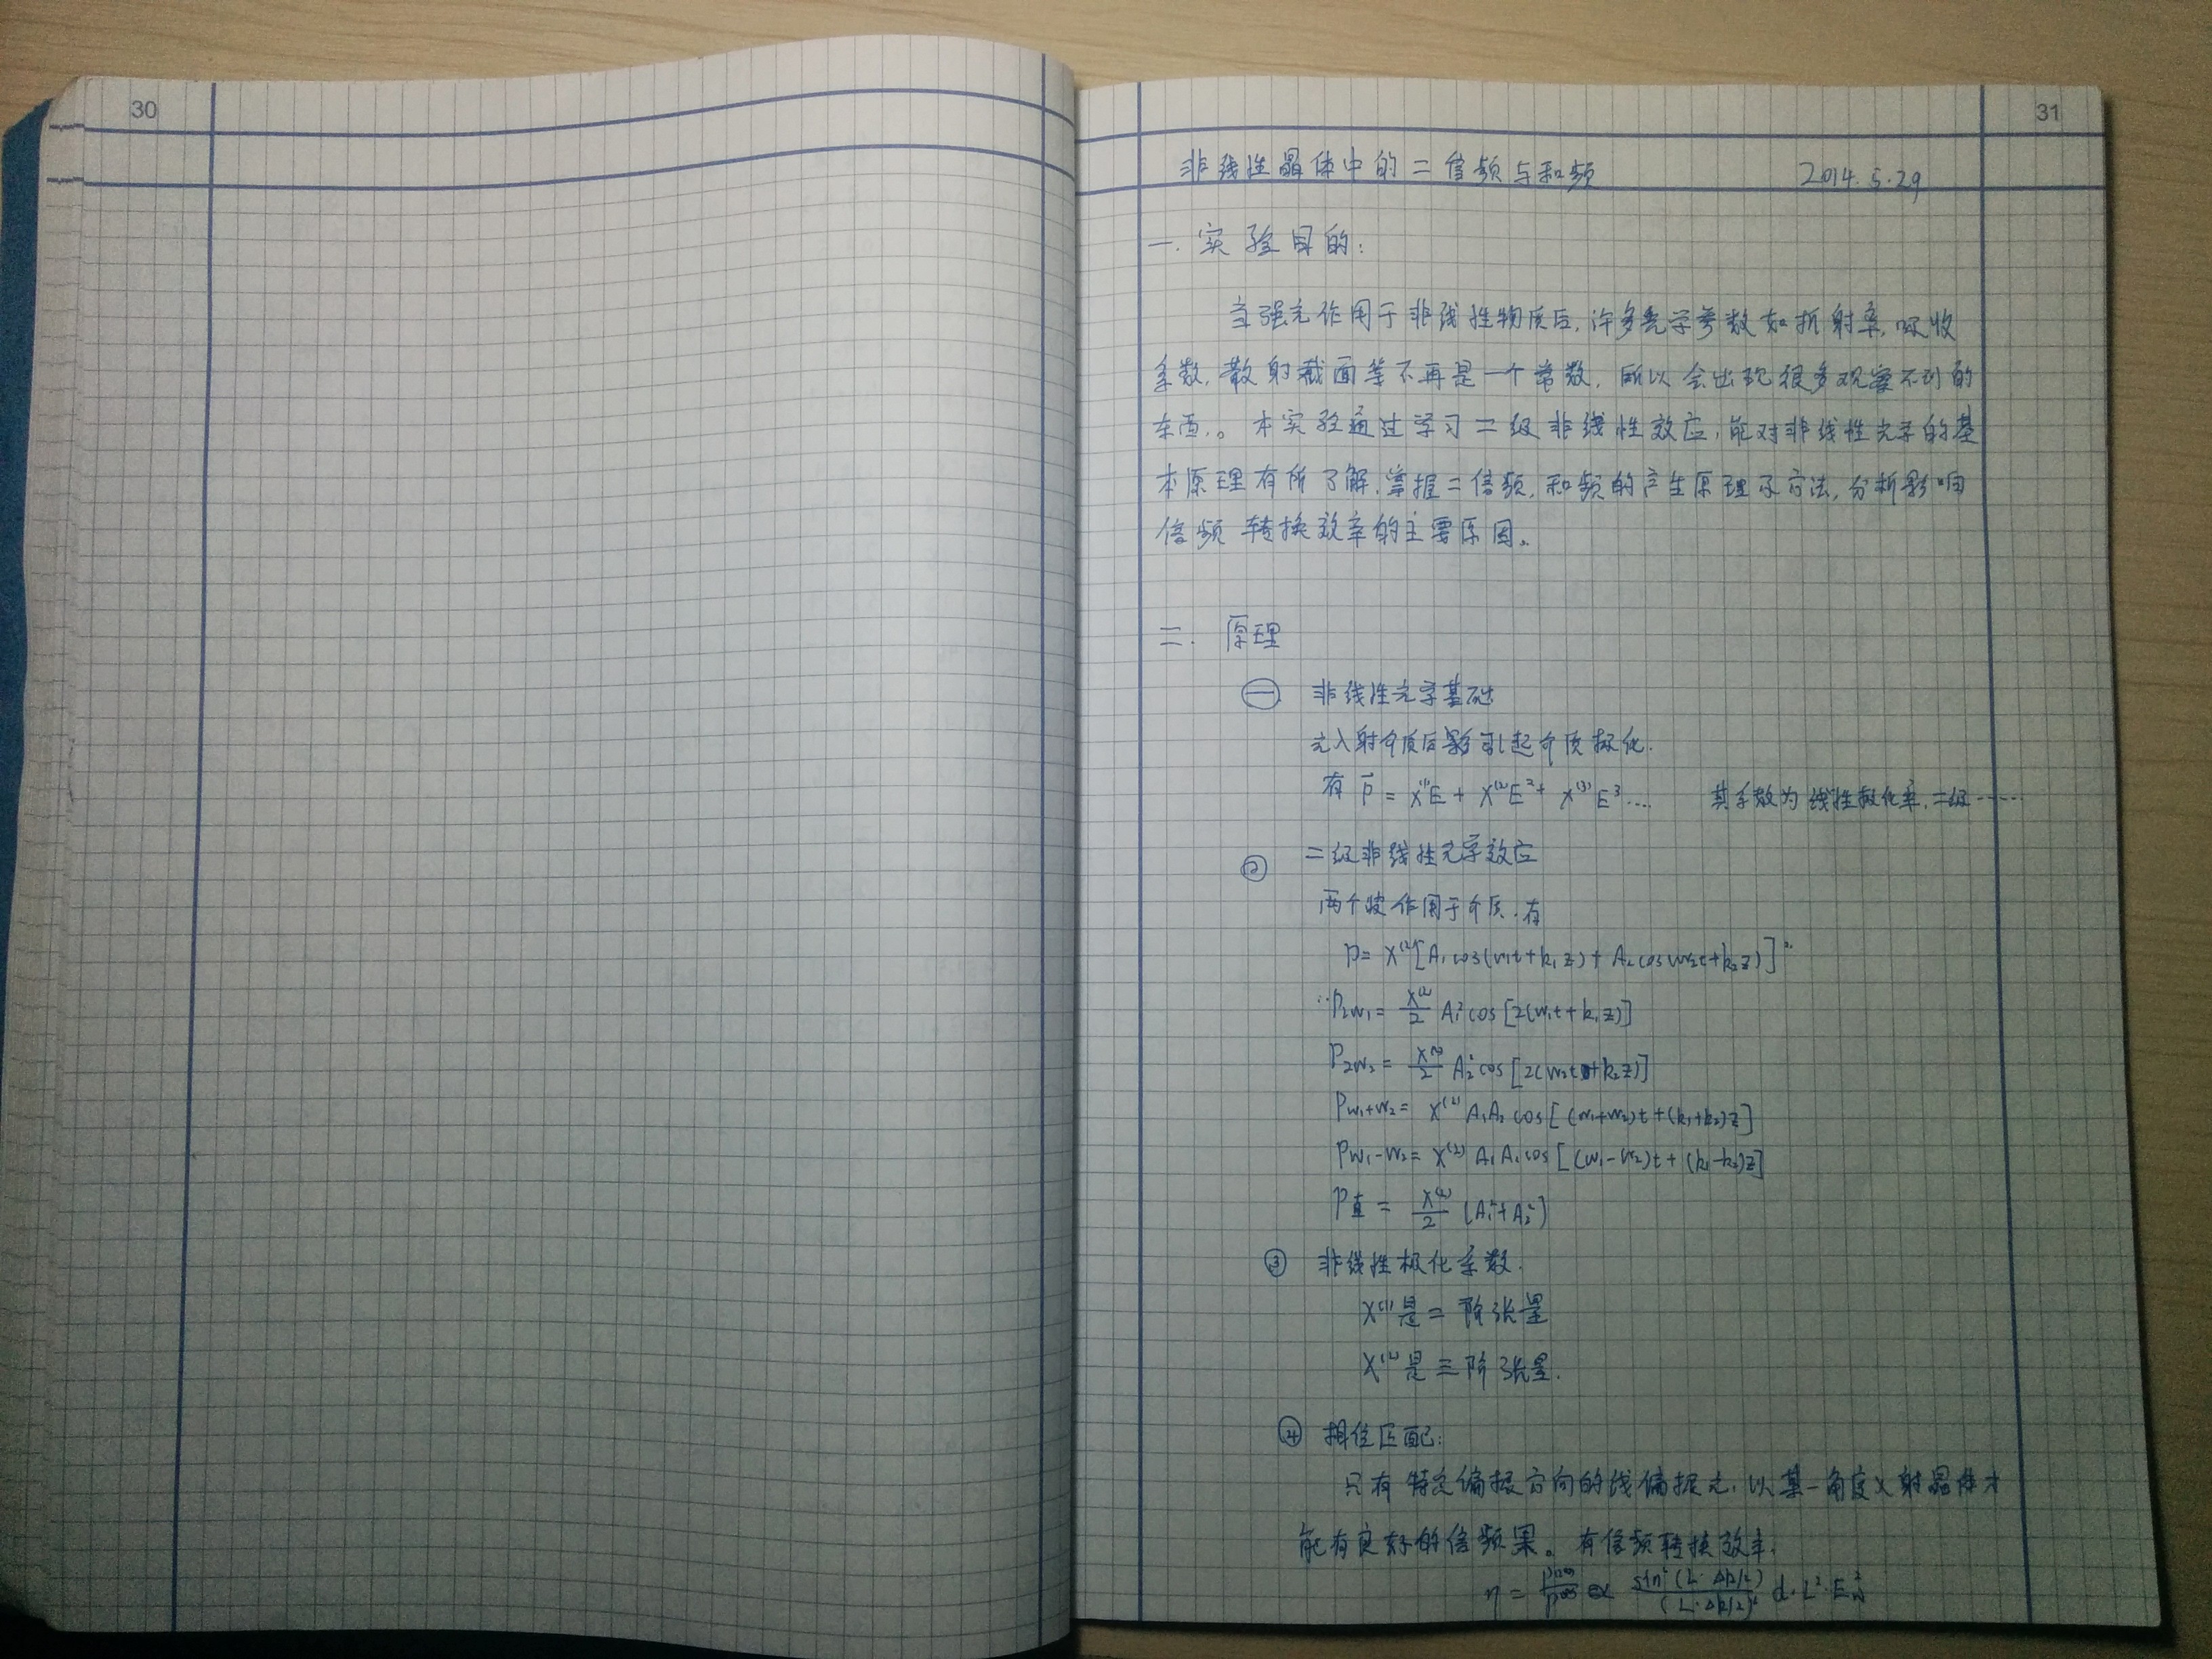 30
31
非线性晶体中的二倍频与和频 2014.5.29
一. 实验目的:
当强光作用于非线性物质后,许多光学参数如折射率,吸收
系数,散射截面等不再是一个常数,所以会出现很多观察不到的
东西.。本实验通过学习二级非线性效应,能对非线性光学的基
本原理有所了解,掌握二倍频,和频的产生原理及方法,分析影响
倍频转换效率的主要原因。
二. 原理
㊀ 非线性光学基础
光入射介质后引起介质极化.
有 P⃗ = X⁽¹⁾E + X⁽²⁾E² + X⁽³⁾E³.... 其系数为线性极化率,二级……
② 二级非线性光学效应
两个波作用于介质.有
P= X⁽²⁾[A₁cos(w₁t+k₁z)+ A₂cos(w₂t+k₂z)]²
∴P2w₁ = X⁽²⁾/2 A₁²cos[2(w₁t+k₁z)]
P2w₂ = X⁽²⁾/2 A₂²cos[2(w₂t+k₂z)]
Pw₁+w₂ = X⁽²⁾A₁A₂cos[(w₁+w₂)t+(k₁+k₂)z]
Pw₁-w₂ = X⁽²⁾A₁A₂cos[(w₁-w₂)t+(k₁-k₂)z]
P直 = X⁽²⁾/2 (A₁²+A₂²)
③ 非线性极化系数.
X⁽¹⁾是二阶张量
X⁽²⁾是三阶张量.
④ 相位匹配:
只有特定偏振方向的线偏振光,以某一角度入射晶体才
能有良好的倍频果。有倍频转换效率.
η = sin²(L·Δk/2)/(L·Δk/2)² d·L²·E